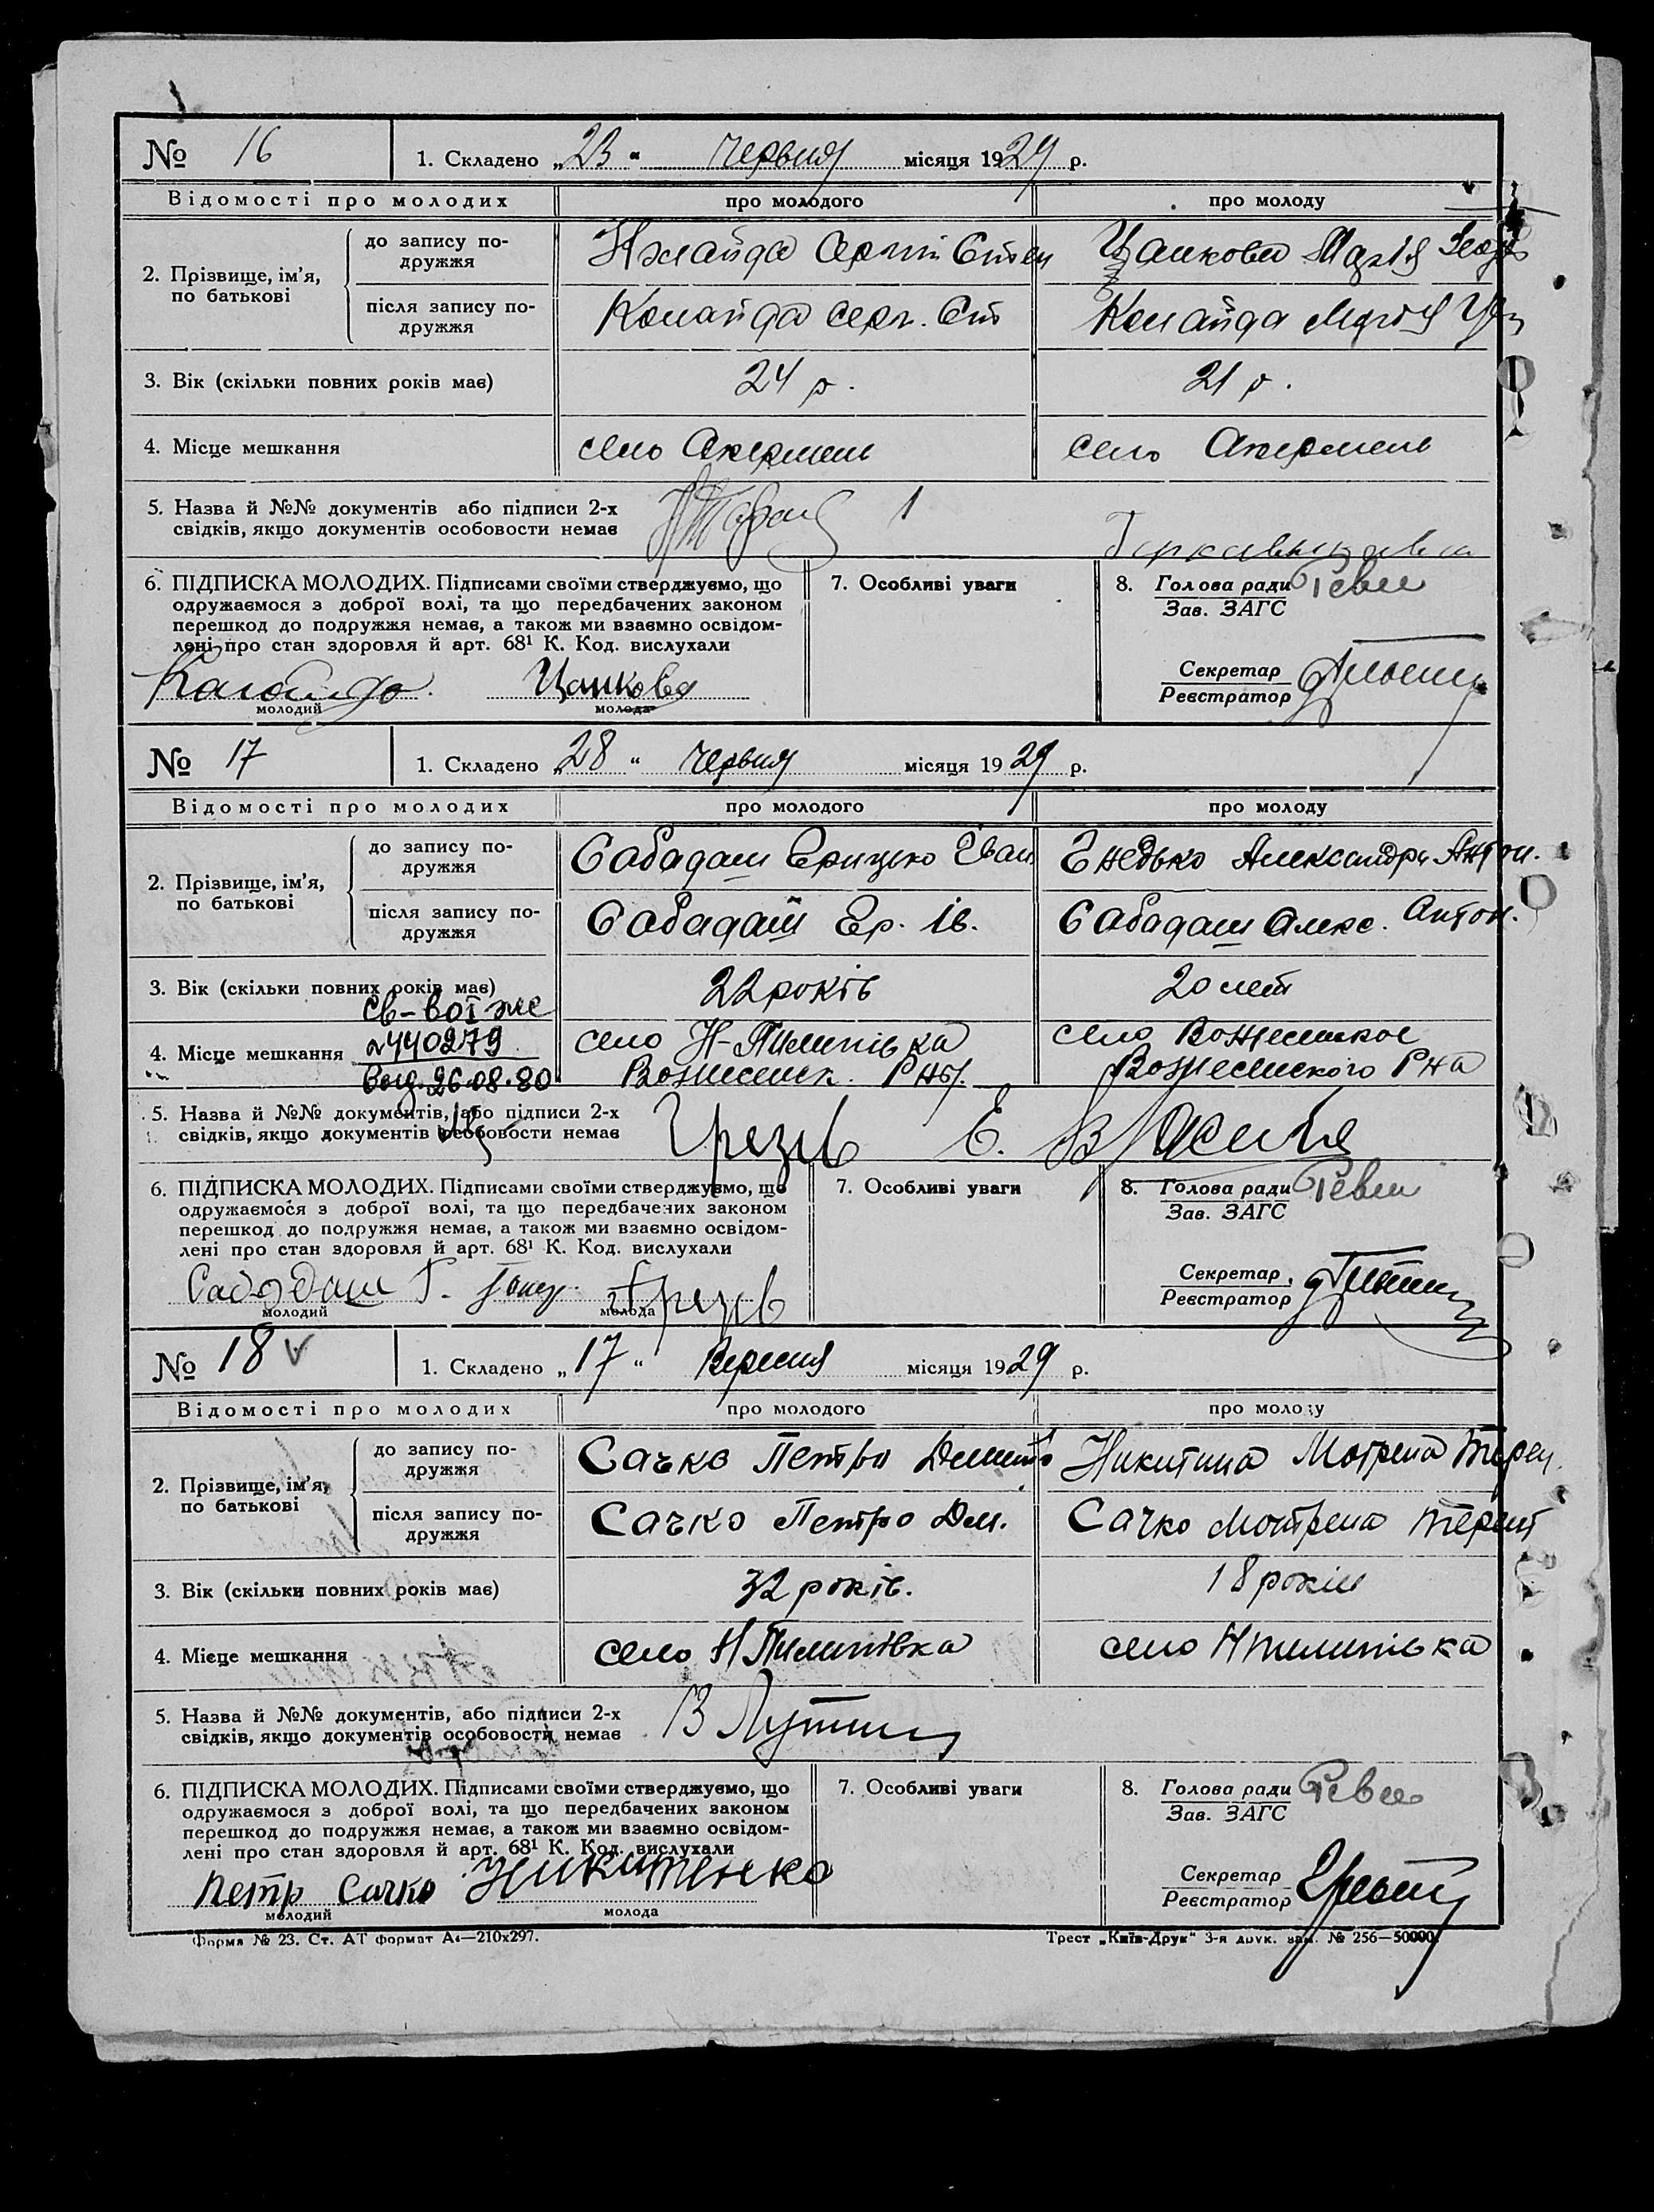 № 16
1. Складено „23“ червня місяця 1929 р.
Відомості про молодих
про молодого
про молоду
2. Прізвище, ім'я, по батькові
до запису подружжя
Цанкова Марія
після запису подружжя
3. Вік (скільки повних років має)
24 р.
21 р.
4. Місце мешкання
село Акермень
село Акермень
5. Назва й №№ документів або підписи 2-х
свідків, якщо документів особовости немає
6. ПІДПИСКА МОЛОДИХ. Підписами своїми стверджуємо, що
одружаємося з доброї волі, та що передбачених законом
перешкод до подружжя немає, а також ми взаємно освідом-
лені про стан здоровля й арт. 68¹ К. Код. вислухали
Цанкова
молодий
молода
7. Особливі уваги
8. Голова ради
Зав. ЗАГС
Секретар
Реєстратор
№ 17
1. Складено „28“ червня місяця 1929 р.
Відомості про молодих
про молодого
про молоду
2. Прізвище, ім'я,
по батькові
до запису по-
дружжя
Сабадаш Грицько Іван
Александра Антон.
після запису по-
дружжя
Сабадаш Гр. Ів.
Сабадаш Алекс. Антон.
3. Вік (скільки повних років має)
22 років
20 лет
4. Місце мешкання
440279
26.08.80
село Н-Пилипівка
село Вознесенкое
Вознесенск. Р-ну.
Вознесенского Р-на
5. Назва й №№ документів, або підписи 2-х
свідків, якщо документів особовости немає
6. ПІДПИСКА МОЛОДИХ. Підписами своїми стверджуємо, що
одружаємося з доброї волі, та що передбачених законом
перешкод до подружжя немає, а також ми взаємно освідом-
лені про стан здоровля й арт. 68¹ К. Код. вислухали
Сабадаш Г.
молодий
молода
7. Особливі уваги
8. Голова ради
Зав. ЗАГС
Секретар
Реєстратор
№ 18 v
1. Складено „17“ Вересня місяця 1929 р.
Відомості про молодих
про молодого
про молоду
2. Прізвище, ім'я,
по батькові
до запису по-
дружжя
Сачко Петро Дмит
Никитина Мотрена Терен.
після запису по-
дружжя
Сачко Петро Дм.
Сачко Мотрена Терент
3. Вік (скільки повних років має)
32 років.
18 років
4. Місце мешкання
село Н Пилипівка
село Н Пилипівка
5. Назва й №№ документів, або підписи 2-х
свідків, якщо документів особовости немає
6. ПІДПИСКА МОЛОДИХ. Підписами своїми стверджуємо, що
одружаємося з доброї волі, та що передбачених законом
перешкод до подружжя немає, а також ми взаємно освідом-
лені про стан здоровля й арт. 68¹ К. Код. вислухали
Петр Сачко Никитенко
молодий
молода
7. Особливі уваги
8. Голова ради
Зав. ЗАГС
Секретар
Реєстратор
Форма № 23. Ст. АТ формат А₄—210х297.
Трест „Київ-Друк“ 3-я друк. зам. № 256—50000.